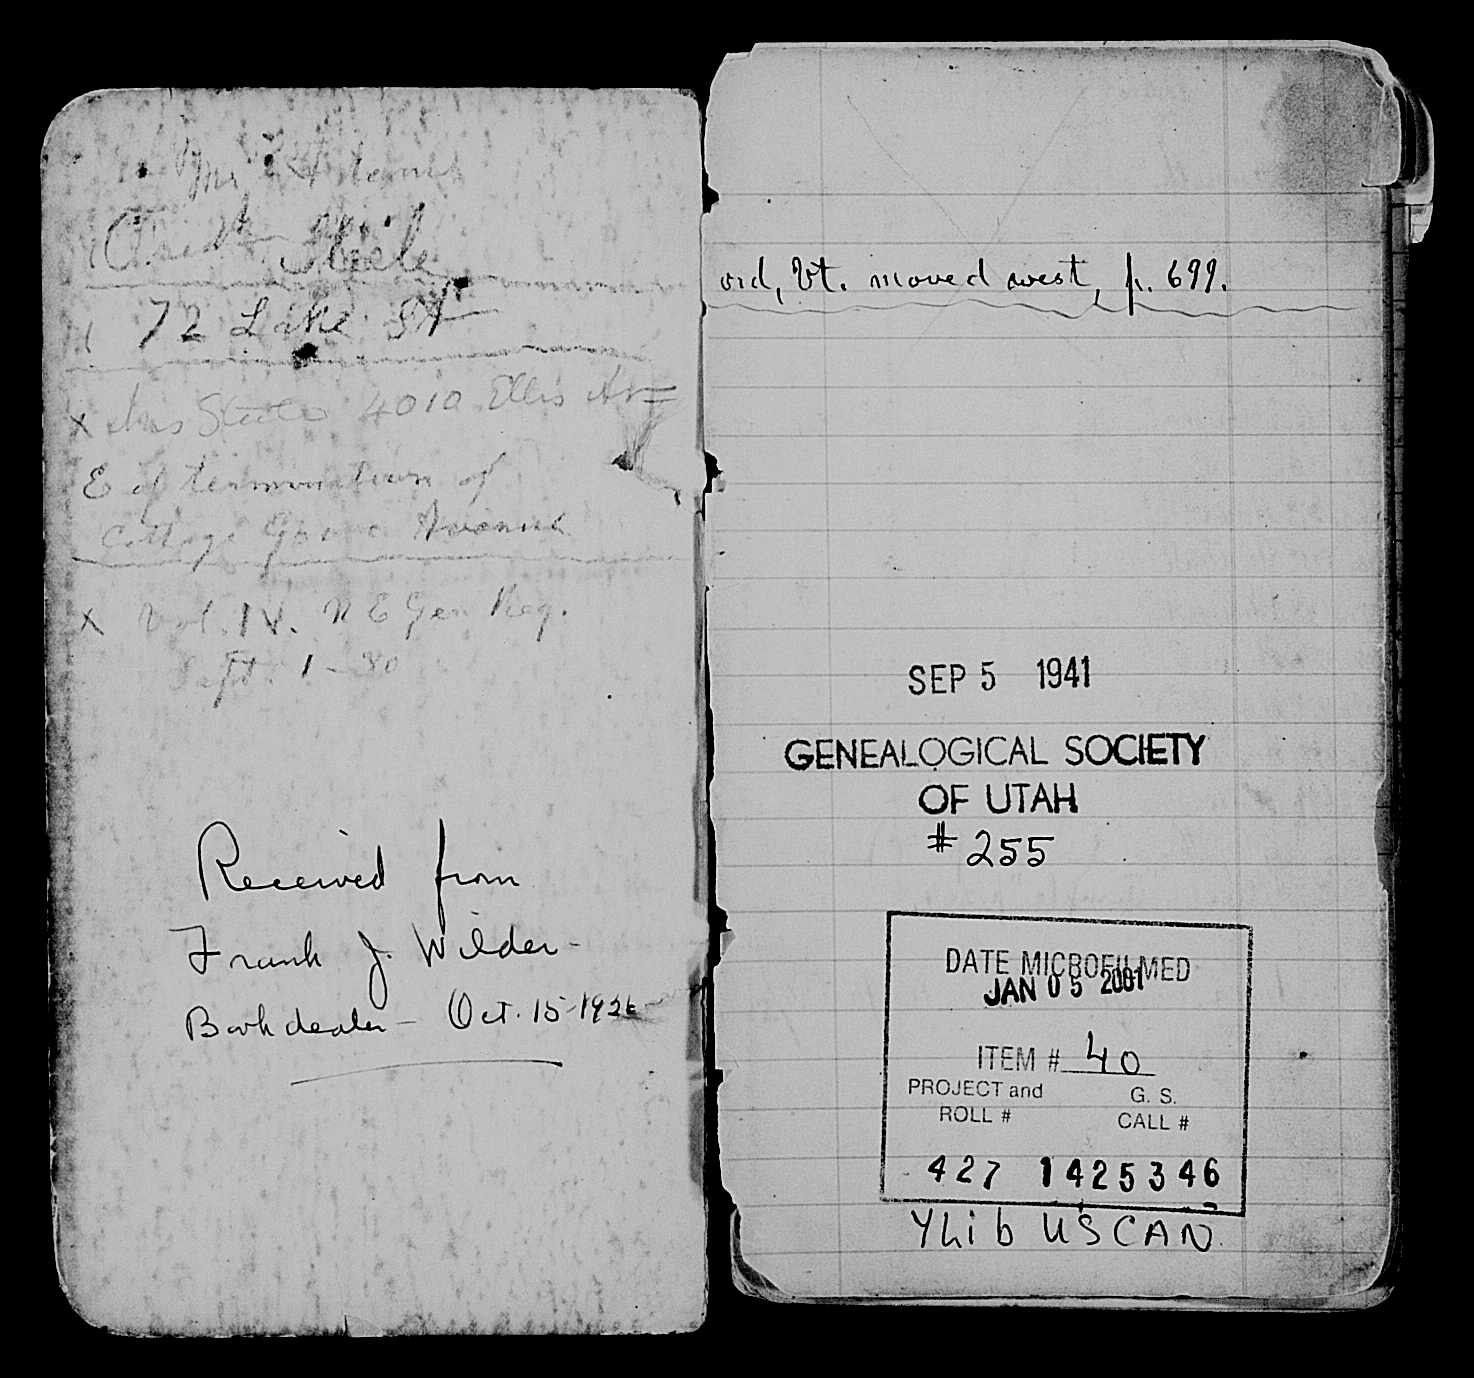 Mr
Steele
72 Lake St
x Mrs Steele 4010 Ellis Av
E of termination of
Cottage Grove Avenue
x Vol. IV. N E Gen Reg.
Sept. 1 - 80
Received from
Frank J. Wilder -
Bookdealer - Oct. 15 - 1926
ord, Vt. moved west, p. 699.
SEP 5 1941
GENEALOGICAL SOCIETY
OF UTAH
# 255
DATE MICROFILMED
JAN 05 2001
ITEM # 40
PROJECT and G. S.
ROLL # CALL #
427 1425346
YLib USCAN